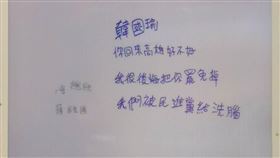 韓國瑜
你回來高雄好不好
我很後悔把你罷免掉
我們被民進黨給洗腦